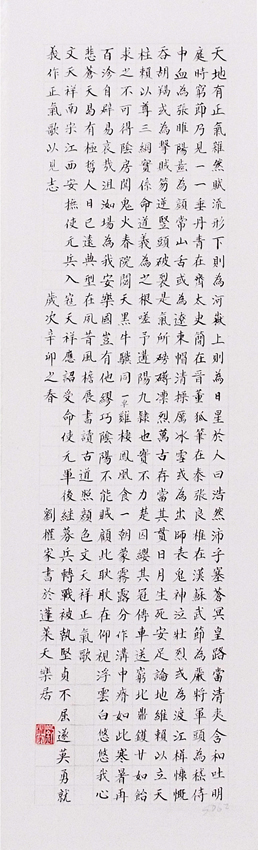 天地有正氣雜然賦流形下則為河嶽上則為日星於人曰浩然沛乎塞蒼冥皇路當清夷含和吐明
庭時窮節乃見一一垂丹青在齊太史簡在晉董狐筆在秦張良椎在漢蘇武節為嚴將軍頭為嵇侍
中血為張睢陽齒為顏常山舌或為遼東帽清操厲冰雪或為出師表鬼神泣壯烈或為渡江楫慷慨
吞胡羯或為擊賊笏逆豎頭破裂是氣所磅礴凜烈萬古存當其貫日月生死安足論地維賴以立天
柱賴以尊三綱實係命道義為之根嗟予遘陽九隸也實不力楚囚纓其冠傳車送窮北鼎鑊甘如飴
求之不可得陰房闃鬼火春院閟天黑牛驥同一皁雞棲鳳凰食一朝蒙霧露分作溝中瘠如此寒暑再
百沴自辟易哀哉沮洳場為我安樂國豈有他繆巧陰陽不能賊顧此耿耿在仰視浮雲白悠悠我心
悲蒼天曷有極哲人日已遠典型在夙昔風檐展書讀古道照顏色文天祥正氣歌
文天祥南宋江西安撫使元兵入寇天祥應詔受命使元軍後繼募兵轉戰被執堅貞不屈遂英勇就
義作正氣歌以見志 歲次辛卯之春 劉權家書於蓬萊天樂居